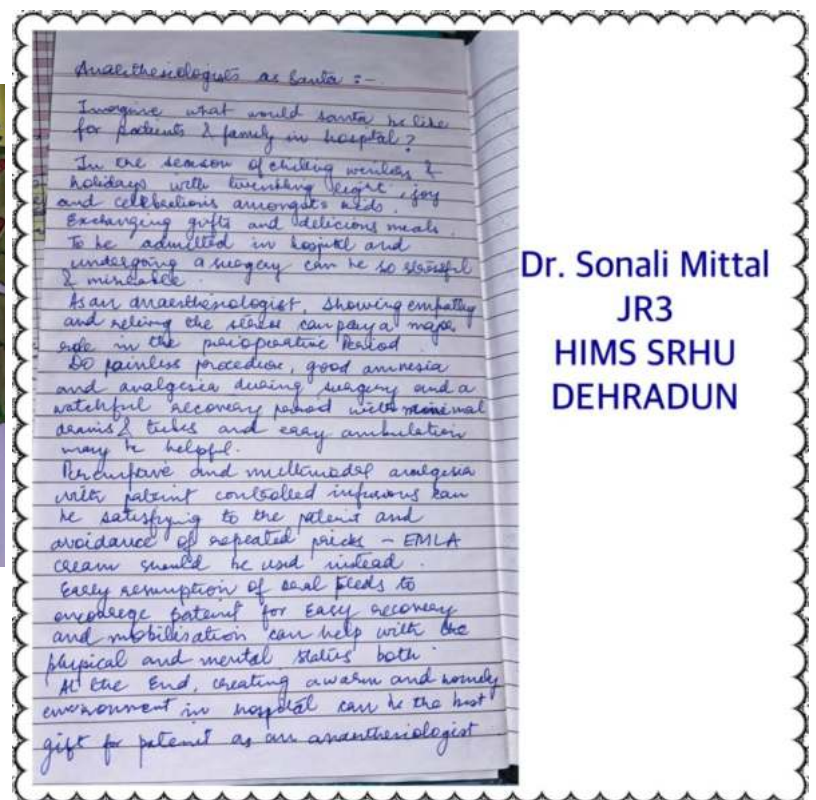 Anaesthesiologists as Santa :-
Imagine what would santa be like
for patients & family in hospital?
In the season of chilling winters &
holidays with twinkling light, joy
and celebrations amongsts kids.
Exchanging gifts and delicious meals.
To be admitted in hospital and
undergoing a surgery can be so stressful
& miserable.
As an anaesthesiologist, showing empathy
and reliving the stress can play a major
role in the perioperative Period
Do painless procedure, good amnesia
and analgesia during surgery and a
watchful recovery period with minimal
drains & tubes and easy ambulation
may be helpful.
Preemptive and multimodal analgesia
with patient controlled infusions can
be satisfying to the patient and
avoidance of repeated pricks - EMLA
cream should be used instead.
Early resumption of oral feeds to
encourage patient for Easy recovery
and mobilisation can help with the
physical and mental status both.
At the End, creating a warm and homely
environment in hospital can be the best
gift for patient as an ananthesiologist
Dr. Sonali Mittal
JR3
HIMS SRHU
DEHRADUN